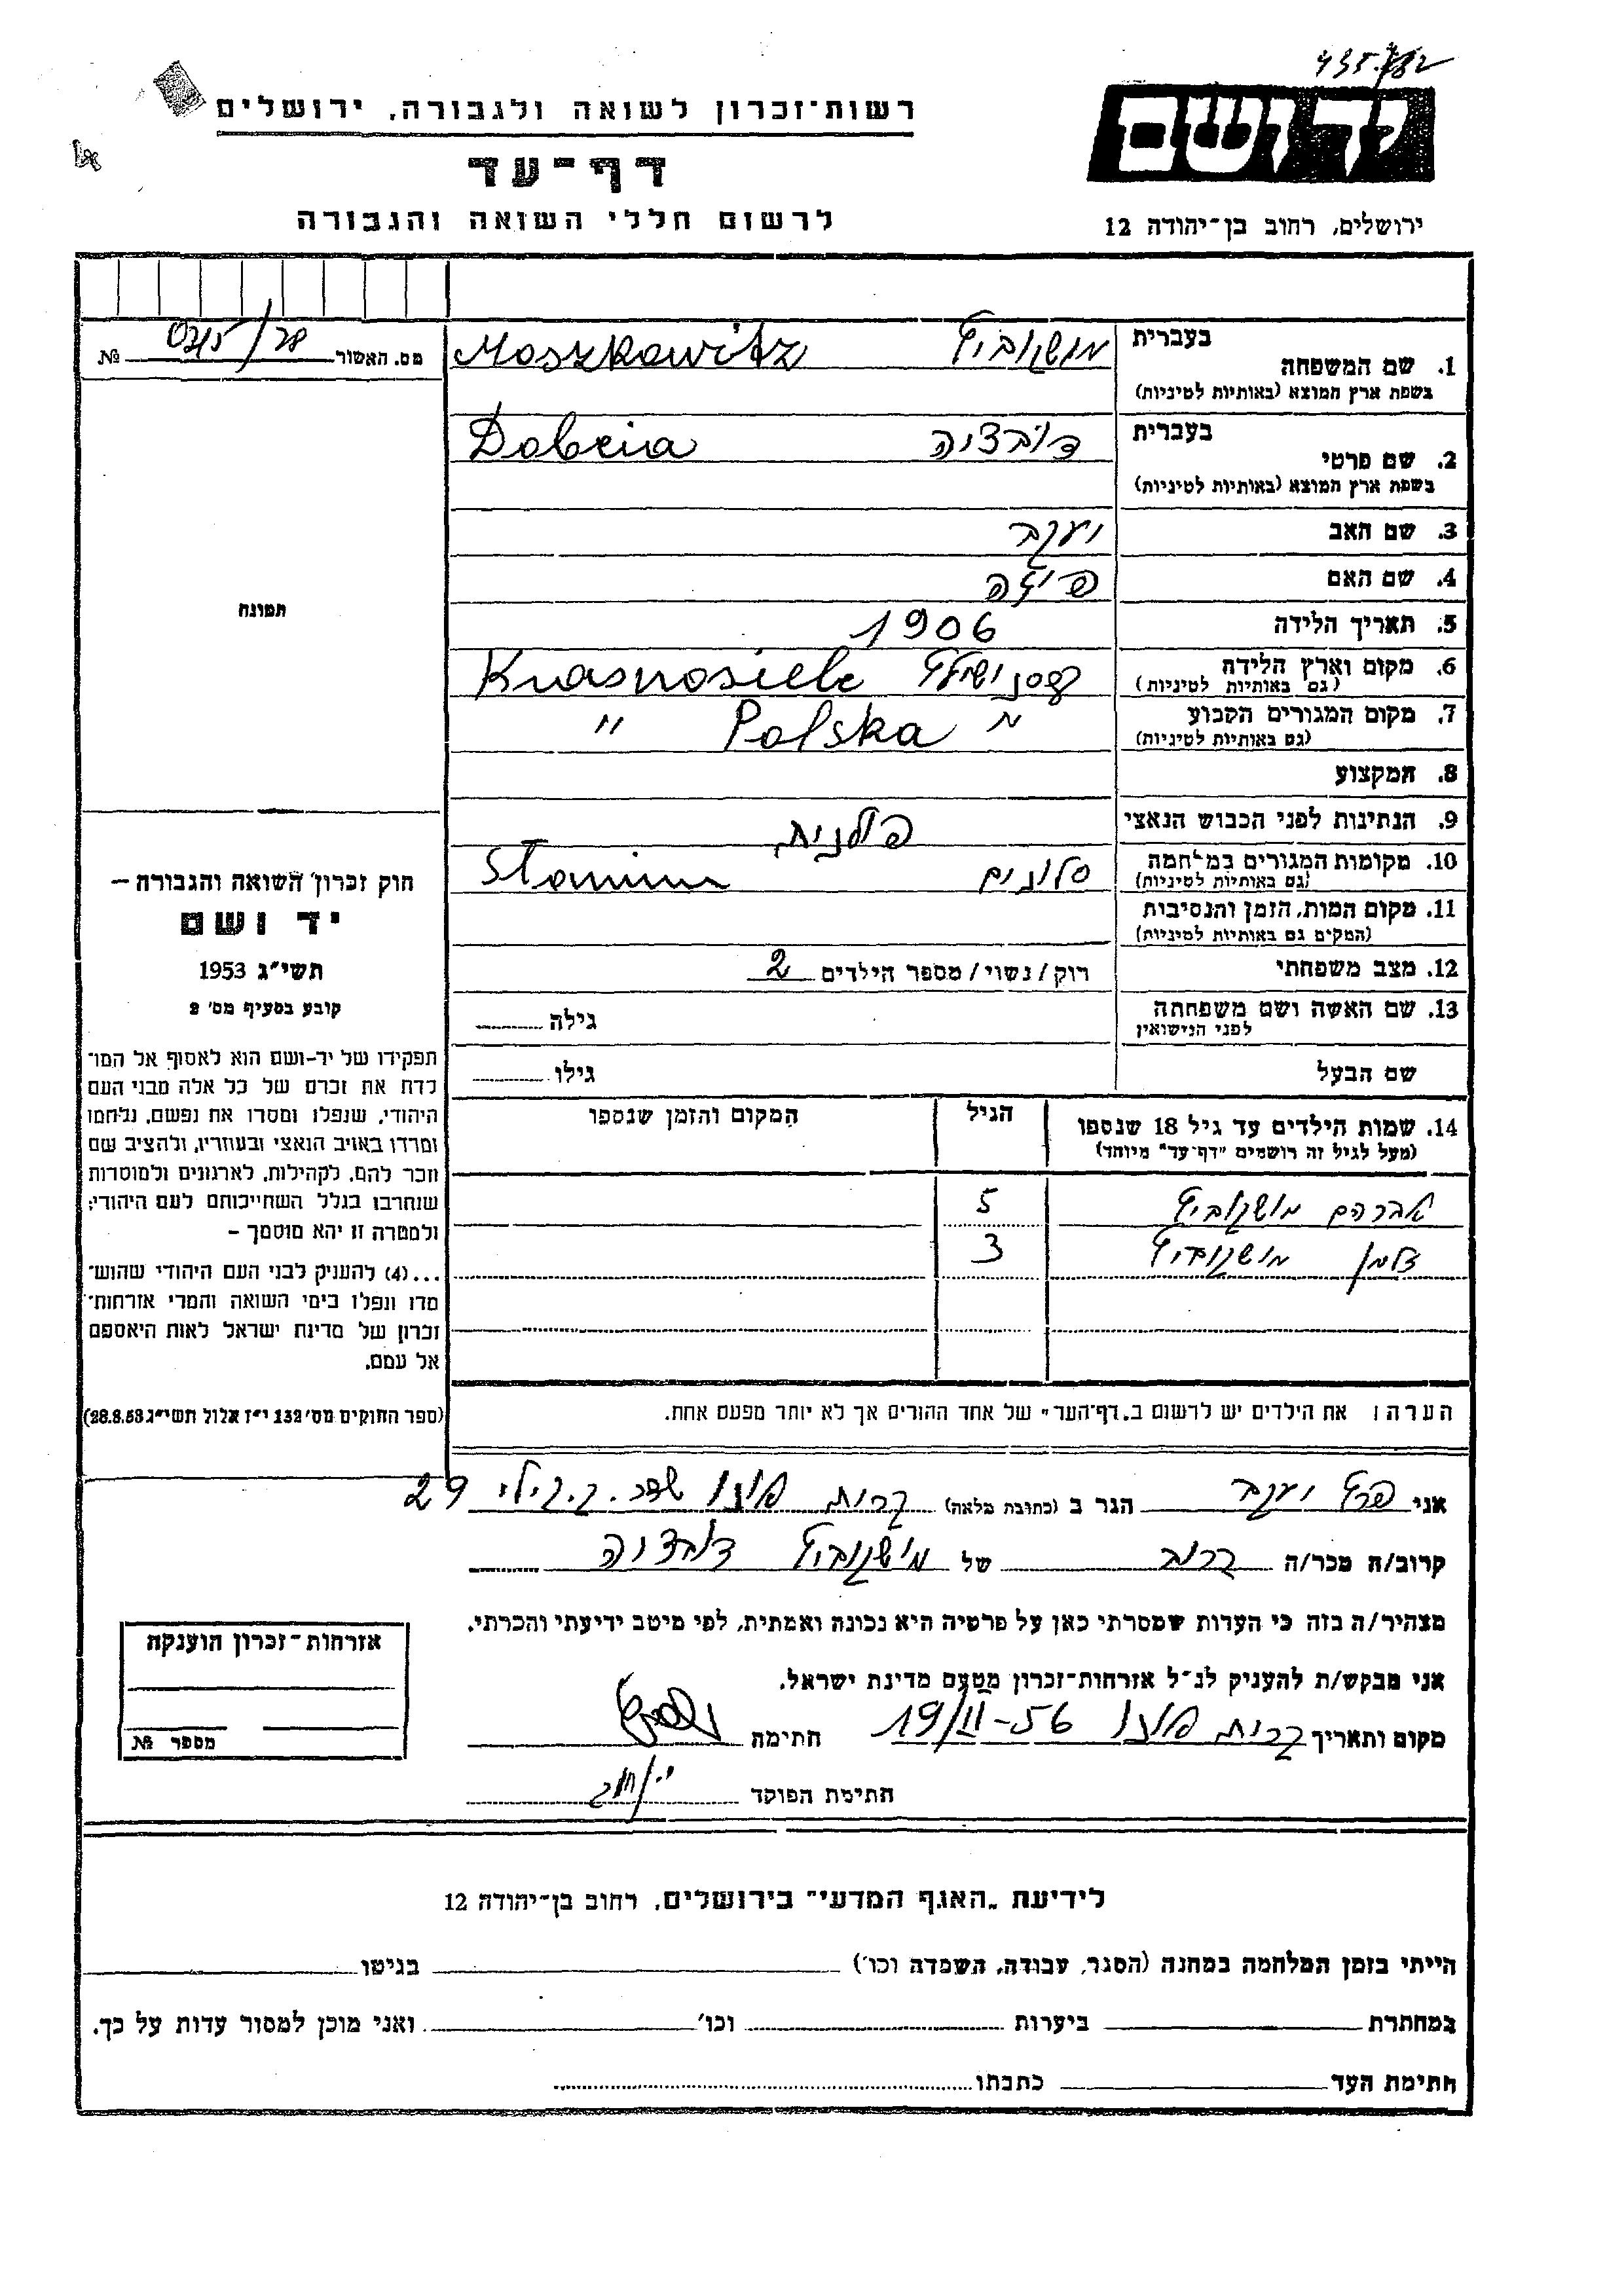 רשות־זכרון לשואה ולגבורה, ירושלים
דף־עד
לרשום חללי השואה והגבורה
יד ושם
ירושלים, רחוב בן־יהודה 12
מס. האשור №
1. שם המשפחה בעברית מושקוביץ Moszkowitz
בשפת ארץ המוצא (באותיות לטיניות)
2. שם פרטי בעברית דובציה Dobcia
בשפת ארץ המוצא (באותיות לטיניות)
3. שם האב יעקב
4. שם האם
5. תאריך הלידה 1906
6. מקום וארץ הלידה Krasnosielc
(גם באותיות לטיניות)
7. מקום המגורים הקבוע " Polska "
(גם באותיות לטיניות)
8. המקצוע
9. הנתינות לפני הכבוש הנאצי פולנית
10. מקומות המגורים במלחמה סלונים Słonim
(גם באותיות לטיניות)
11. מקום המות, הזמן והנסיבות
(המקום גם באותיות לטיניות)
12. מצב משפחתי רוק/נשוי/מספר הילדים 2
13. שם האשה ושם משפחתה גילה
לפני הנישואין
שם הבעל גילו
14. שמות הילדים עד גיל 18 שנספו הגיל המקום והזמן שנספו
(מעל לגיל זה רושמים "דף־עד" מיוחד)
אברהם מושקוביץ 5
זלמן מושקוביץ 3
הערה: את הילדים יש לרשום ב„דף־העד" של אחד ההורים אך לא יותר מפעם אחת.
תמונה
חוק זכרון השואה והגבורה –
יד ושם
תשי"ג 1953
קובע בסעיף מס' 2
תפקידו של יד-ושם הוא לאסוף אל המו־
לדת את זכרם של כל אלה מבני העם
היהודי, שנפלו ומסרו את נפשם, נלחמו
ומרדו באויב הנאצי ובעוזריו, ולהציב שם
וזכר להם, לקהילות, לארגונים ולמוסדות
שנחרבו בגלל השתייכותם לעם היהודי;
ולמטרה זו יהא מוסמך –
...(4) להעניק לבני העם היהודי שהוש־
מדו ונפלו בימי השואה והמרי אזרחות־
זכרון של מדינת ישראל לאות היאספם
אל עמם.
(ספר החוקים מס' 132 י"ז אלול תשי"ג 28.8.53)
אני יעקב הגר ב (כתובת מלאה) קרית 29
קרוב/ה מכר/ה קרוב של מושקוביץ דובציה
מצהיר/ה בזה כי העדות שמסרתי כאן על פרטיה היא נכונה ואמתית, לפי מיטב ידיעתי והכרתי.
אני מבקש/ת להעניק לנ"ל אזרחות־זכרון מטעם מדינת ישראל.
מקום ותאריך קרית 19/II-56 חתימה
חתימת הפוקד
אזרחות־זכרון הוענקה
מספר №
לידיעת „האגף המדעי" בירושלים, רחוב בן־יהודה 12
הייתי בזמן המלחמה במחנה (הסגר, עבודה, השמדה וכו') בגיטו
במחתרת ביערות וכו' ואני מוכן למסור עדות על כך.
חתימת העד כתבתו